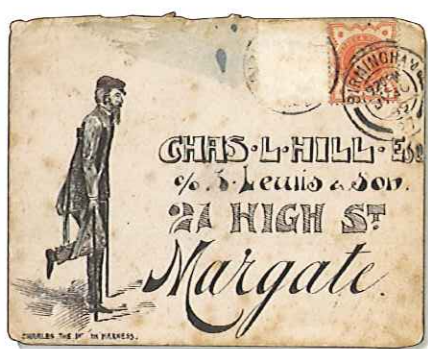 BIRMINGHAM
CHAS·L·HILL·ESQ
c/o. S. Lewis & Son.
21 HIGH ST
Margate.
CHARLES THE 1ST IN HARNESS.